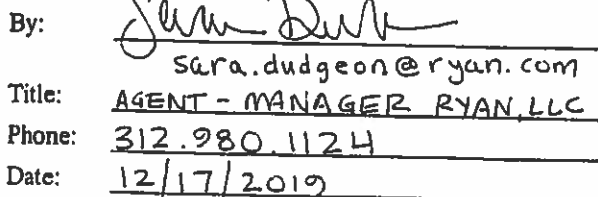 By:
sara.dudgeon@ryan.com
Title: AGENT - MANAGER RYAN, LLC
Phone: 312.980.1124
Date: 12/17/2019